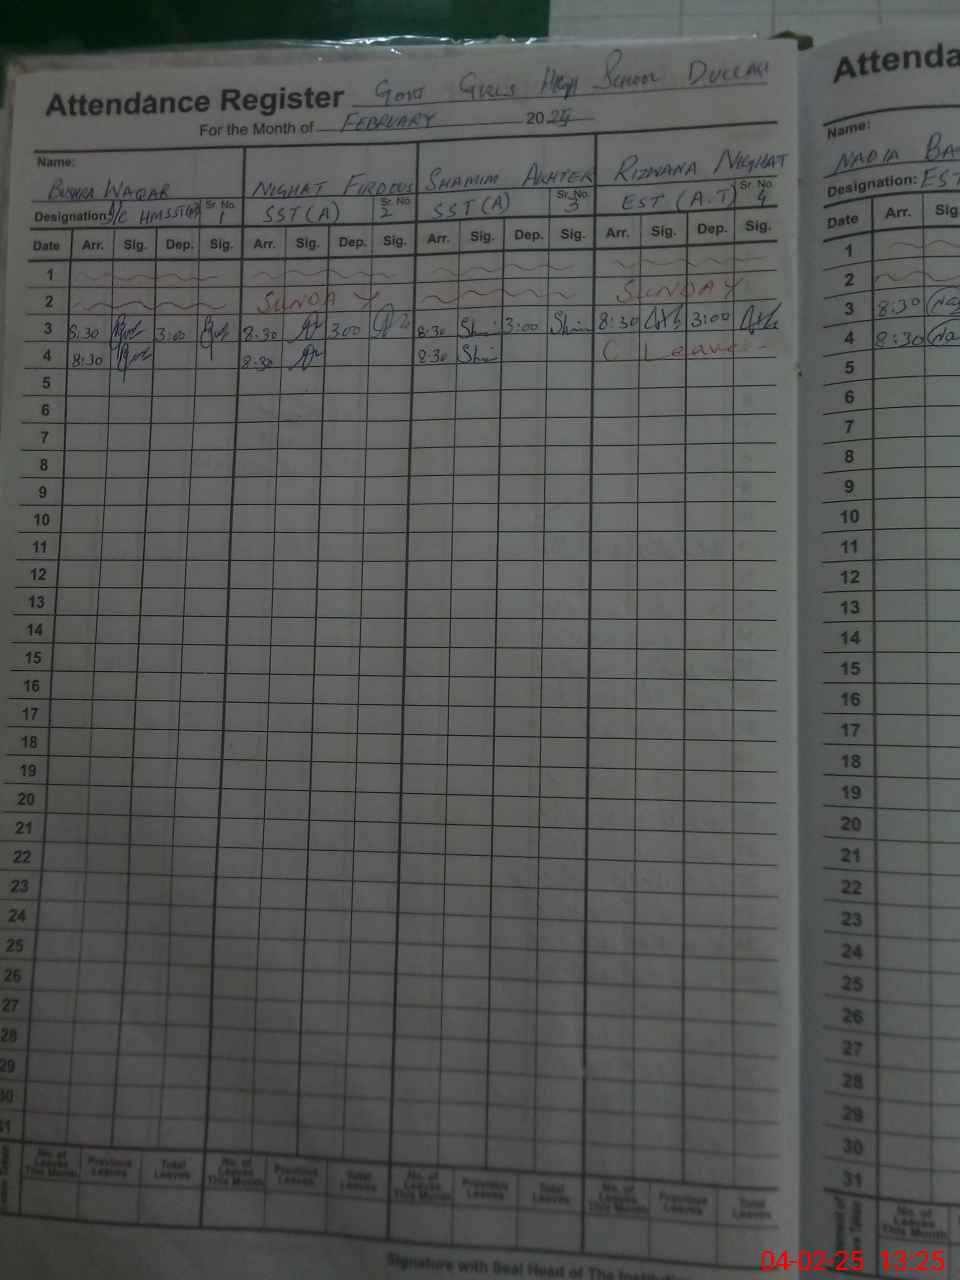 Attendance Register Govt Girls High School Dullah
For the Month of FEBRUARY 2025
Name:
BUSHRA WAQAR NIGHAT FIRDOUS SHAMIM AKHTER RIZWANA NIGHAT
Designation: I/C HM SST Sr. No. 1 SST (A) Sr. No. 2 SST (A) Sr. No. 3 EST (A.T) Sr. No. 4
Date Arr. Sig. Dep. Sig. Arr. Sig. Dep. Sig. Arr. Sig. Dep. Sig. Arr. Sig. Dep. Sig.
1
2 SUNDAY SUNDAY
3 8:30 3:00 8:30 3:00 8:30 3:00 8:30 3:00
4 8:30 8:30 8:30 C Leave
5
6
7
8
9
10
11
12
13
14
15
16
17
18
19
20
21
22
23
24
25
26
27
28
29
30
31
No. of Leaves This Month Previous Leaves Total Leaves No. of Leaves This Month Previous Leaves Total Leaves No. of Leaves This Month Previous Leaves Total Leaves No. of Leaves This Month Previous Leaves Total Leaves
Signature with Seal Head of The
Attenda
Name:
NADIA
Designation: EST
Date Arr. Sig
1
2
3 8:30
4 8:30
5
6
7
8
9
10
11
12
13
14
15
16
17
18
19
20
21
22
23
24
25
26
27
28
29
30
31
No. of Leaves This Month
04-02-25 13:25